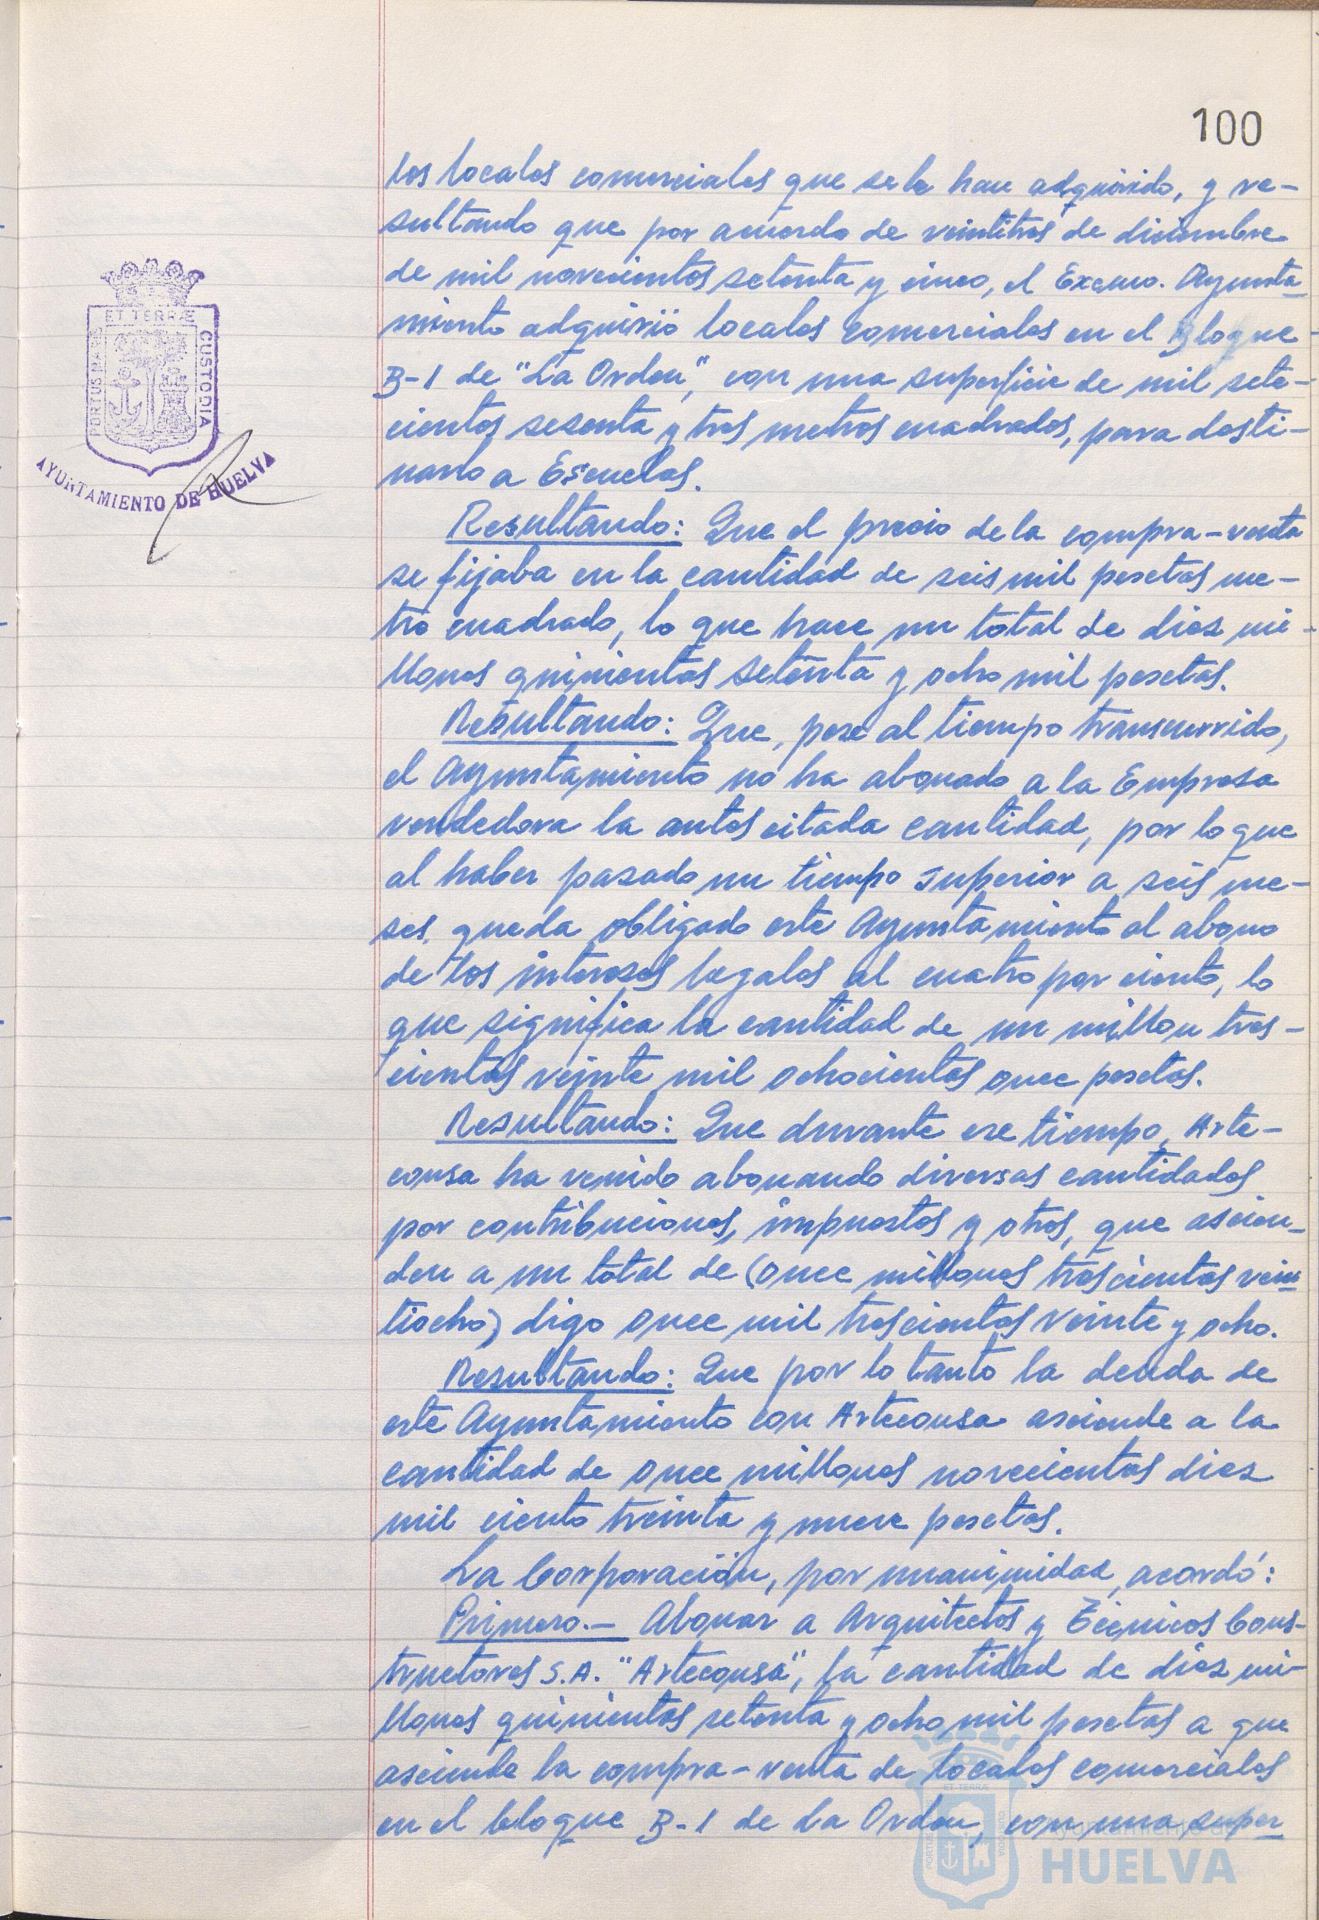 100
los locales comerciales que se le han adquirido, y re-
sultando que por acuerdo de veintitres de diciembre
de mil novecientos setenta y cinco, el Excmo. Ayunta-
miento adquirió locales comerciales en el Bloque
B-1 de "La Orden", con una superficie de mil sete-
cientos sesenta y tres metros cuadrados, para desti-
narlo a Escuelas.
Resultando: Que el precio de la compra-venta
se fijaba en la cantidad de seis mil pesetas me-
tro cuadrado, lo que hace un total de diez mi-
llones quinientas setenta y ocho mil pesetas.
Resultando: Que, pese al tiempo transcurrido,
el Ayuntamiento no ha abonado a la Empresa
vendedora la antes citada cantidad, por lo que
al haber pasado un tiempo superior a seis me-
ses, queda obligado este Ayuntamiento al abono
de los intereses legales al cuatro por ciento, lo
que significa la cantidad de un millon tres-
cientas veinte mil ochocientas once pesetas.
Resultando: Que durante ese tiempo, Arte-
consa ha venido abonando diversas cantidades
por contribuciones, impuestos y otros, que ascien-
den a un total de (once millones trescientas vein
tiocho) digo once mil trescientos veinte y ocho.
Resultando: Que por lo tanto la deuda de
este Ayuntamiento con Arteconsa asciende a la
cantidad de once millones novecientas diez
mil ciento treinta y nueve pesetas.
La Corporación, por unanimidad, acordó:
Primero.- Abonar a Arquitectos y Técnicos Cons-
tructores S.A. "Arteconsa", la cantidad de diez mi-
llones quinientas setenta y ocho mil pesetas a que
asciende la compra-venta de locales comerciales
en el bloque B-1 de La Orden, con una super
PORTUS MARIS ET TERRÆ CUSTODIA
AYUNTAMIENTO DE HUELVA
Ayuntamiento de
HUELVA